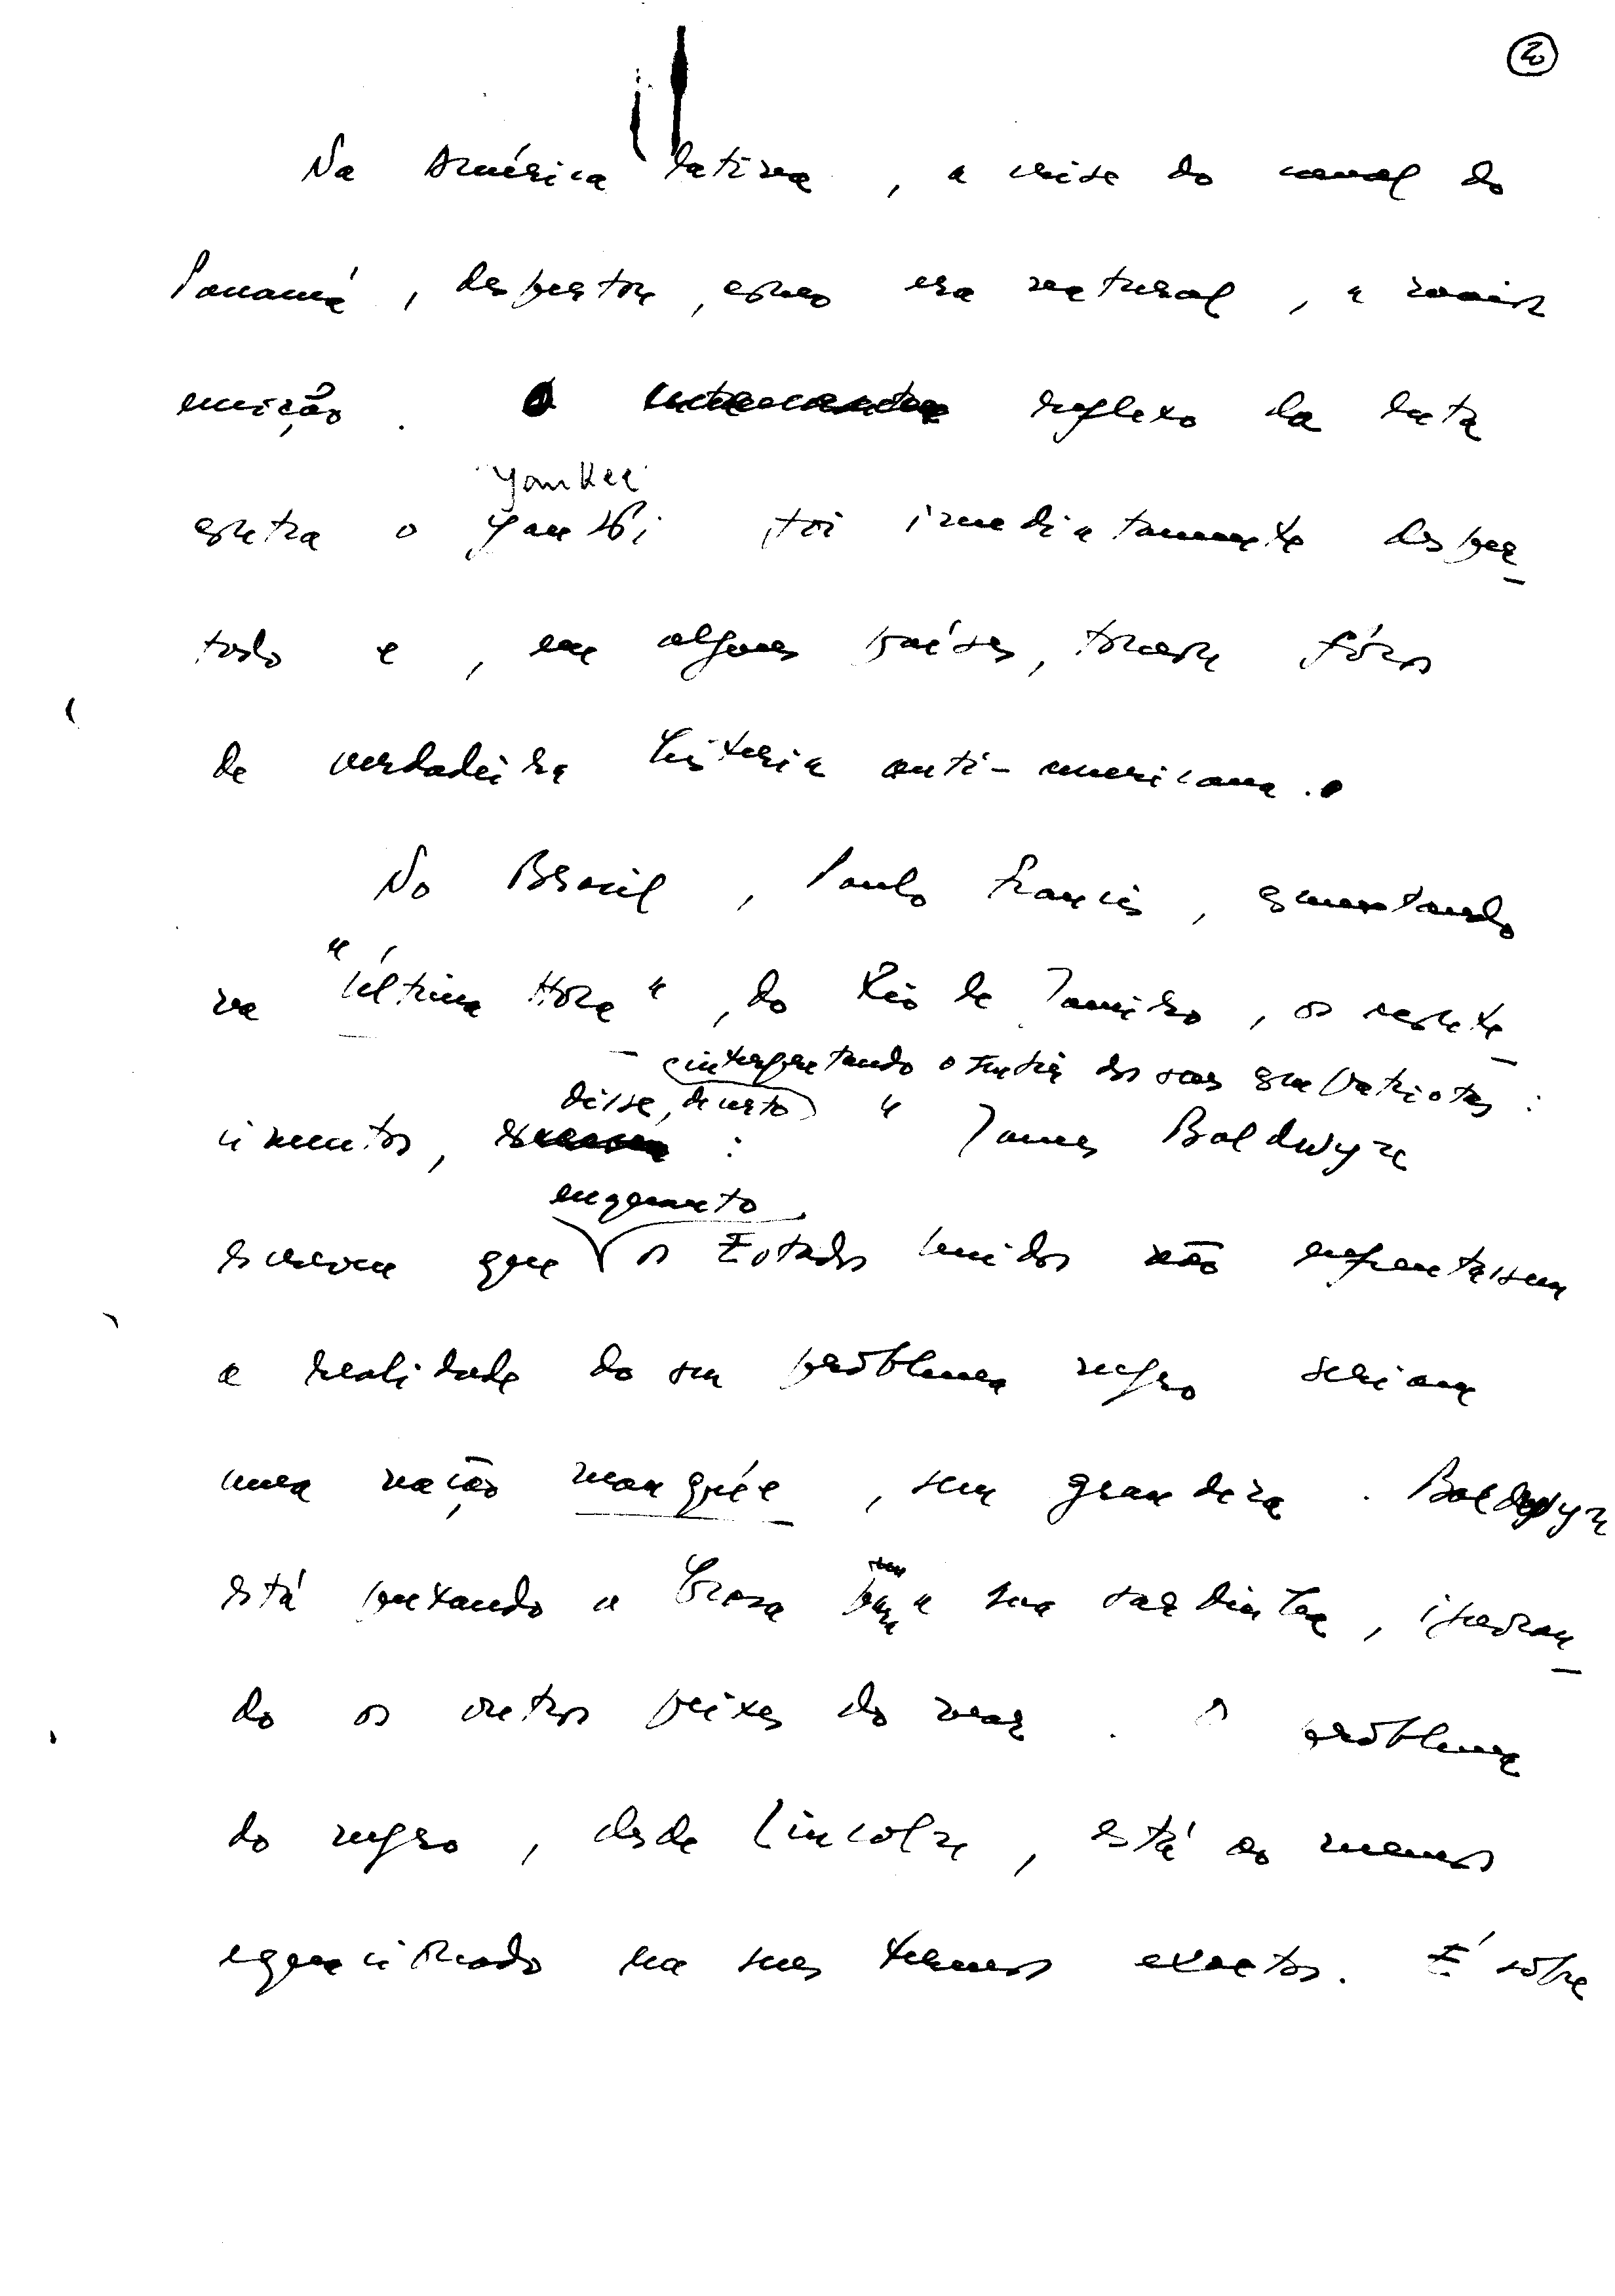 20
Na América latina, a crise do canal do
Panamá, despertou, como era natural, a maior
emoção. O reflexo da luta
contra o yanki foi imediatamente desper-
yankee
tado e, em alguns países, tomou fóros
de verdadeira histeria anti-americana.
No Brasil, Paulo Francis, comentando
na "Última Hora", do Rio de Janeiro, os aconte-
interpretando o sentir dos seus compatriotas:
disse, decerto
cimentos, : " James Baldwyn
enquanto
escreveu que os Estados Unidos não enfrentassem
a realidade do seu problema negro seriam
uma nação manquée, sem grandeza. Baldwyn
está puxando a brasa para a sua sardinha, ignoran-
do os outros peixes do mar. O problema
do negro, desde Lincoln, está ao menos
equacionado nos seus termos exactos. É sôbre